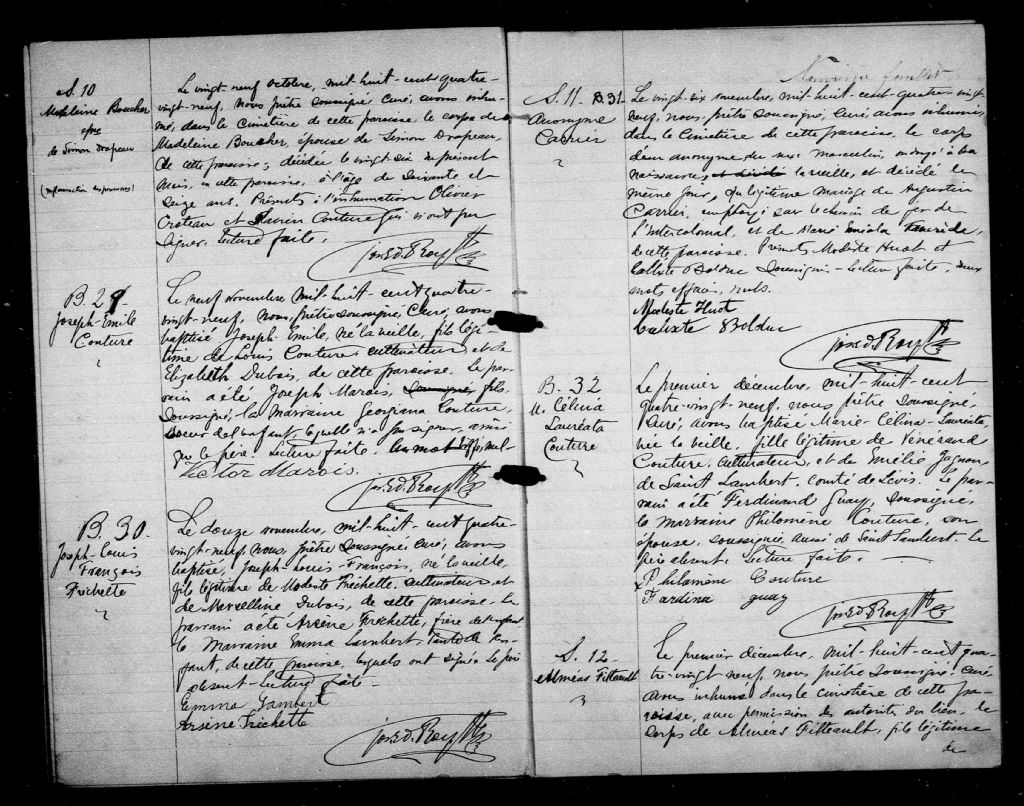 S. 10
Madeleine Boucher
épse
de Simon Drapeau
Le vingt-neuf octobre, mil-huit-cent quatre-
vingt-neuf, nous prêtre soussigné curé, avons inhu-
mé, dans le cimetière de cette paroisse le corps de
Madeleine Boucher, épouse de Simon Drapeau,
de cette paroisse, décédée le vingt-six du présent
mois, en cette paroisse, à l'âge de soixante et
seize ans. Présents à l'inhumation Olivier
Croteau et Couture qui n'ont pu
signer. Lecture faite.
Jos. Ed. Roy Ptre
B. 29
Joseph-Emile
Couture
Le neuf novembre, mil-huit-cent quatre-
vingt-neuf, nous, prêtre soussigné, curé, avons
baptisé Joseph Emile, né la veille, fils légi-
time de Louis Couture, cultivateur et de
Elizabeth Dubois, de cette paroisse. Le par-
rain a été Joseph Marois, soussigné, fils,
soussigné, la marraine Georgiana Couture,
soeur de l'enfant, laquelle n'a pu signer, ainsi
que le père. Lecture faite. un mot nul.
Victor Marois.
Jos. Ed. Roy Ptre
B. 30
Joseph-Louis
François
Fréchette
Le douze novembre, mil-huit-cent quatre-
vingt-neuf, nous, prêtre soussigné, curé, avons
baptisé, Joseph-Louis-François, né la veille,
fils légitime de Modeste Fréchette, cultivateur et
de Marcelline Dubois, de cette paroisse. Le
parrain a été Arsène Fréchette, frère de l'enfant
la marraine Emma Lambert, tante de l'en-
fant, de cette paroisse, lesquels ont signé. Le père
absent. Lecture faite.
Emma Lambert
Arsène Fréchette
Jos. Ed. Roy Ptre
S. 11 B. 31
Anonyme
Carrier
Le vingt-six novembre, mil-huit-cent-quatre-vingt-
neuf, nous, prêtre soussigné, curé, avons inhumé,
dans le cimetière de cette paroisse, le corps
d'un anonyme du sexe masculin, ondoyé à la
naissance, et décédé la veille, et décédé le
même jour, du légitime mariage de Augustin
Carrier, employé sur le chemin de fer de
l'Intercolonial, et de Marie
de cette paroisse. Présents Modeste Huot et
Calixte Bolduc soussignés. Lecture faite, deux
mots effacés, nuls.
Modeste Huot
Calixte Bolduc
Jos. Ed. Roy Ptre
B. 32
M. Célina
Lauréata
Couture
Le premier décembre, mil-huit-cent
quatre-vingt-neuf, nous prêtre soussigné,
curé, avons baptisé Marie-Célina-Lauréata
née la veille, fille légitime de Vénérand
Couture, cultivateur, et de Emélie Gagnon,
de Saint Lambert, comté de Lévis. Le par-
rain a été Ferdinand Guay, soussigné,
la marraine Philomène Couture, son
épouse, soussignée, aussi de Saint Lambert. Le
père absent. Lecture faite.
Philomène Couture
Fardina guay
Jos. Ed. Roy Ptre
S. 12
Alméas Filteault
Le premier décembre, mil-huit-cent qua-
tre-vingt neuf, nous prêtre soussigné, curé
avons inhumé dans le cimetière de cette pa-
roisse, avec permission des autorités du lieu, le
corps de Alméas Filteault, fils légitime
de